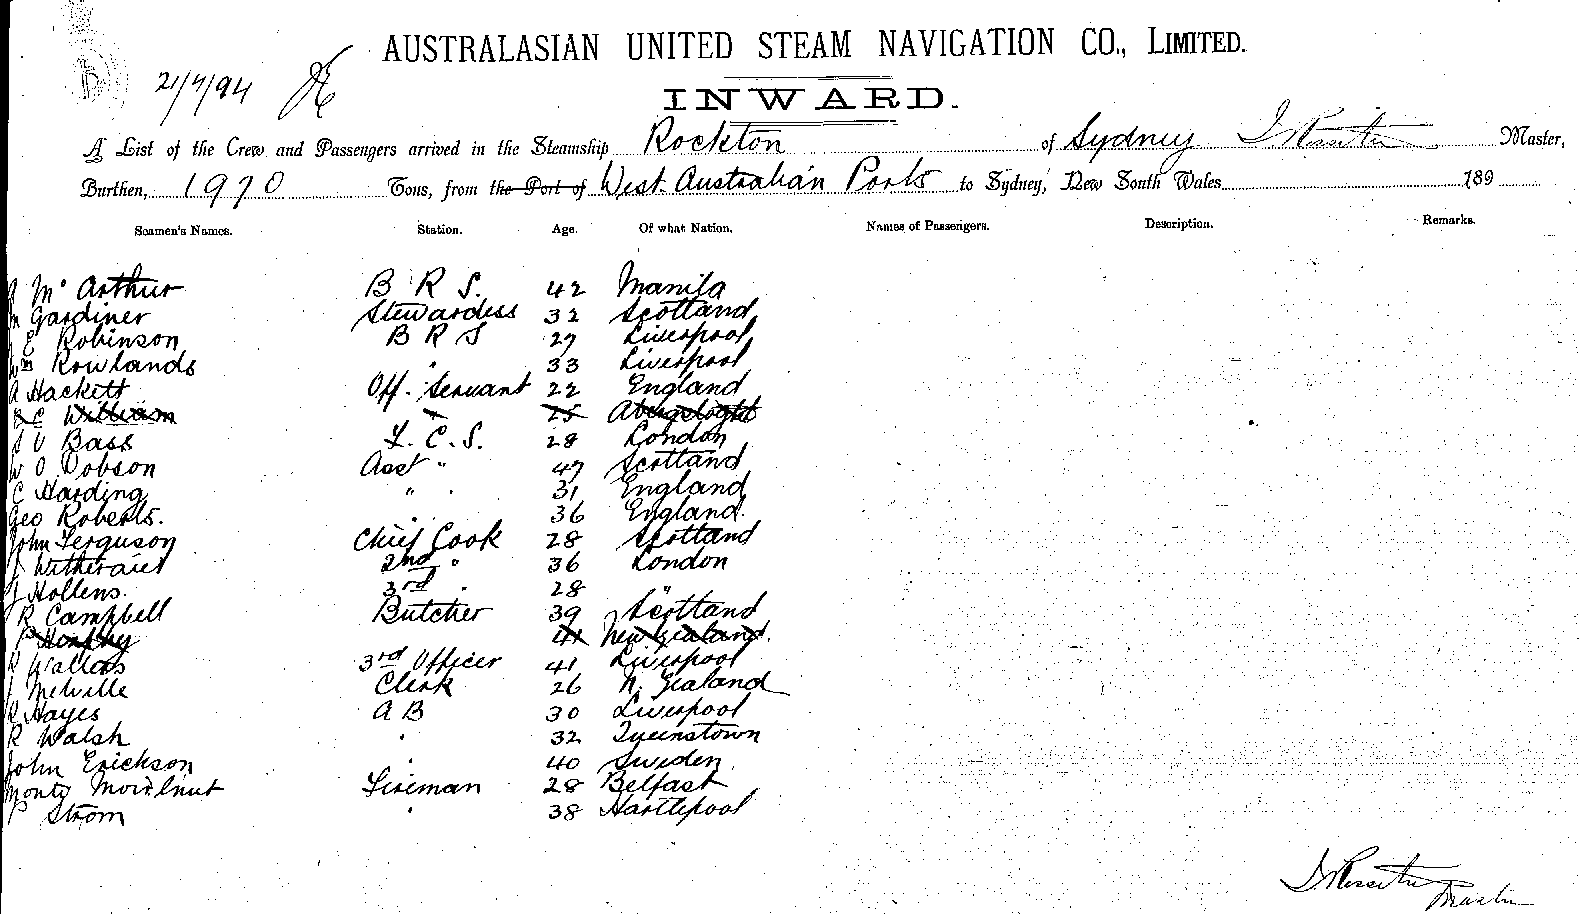 AUSTRALASIAN UNITED STEAM NAVIGATION CO., LIMITED.
21/7/94
INWARD.
A List of the Crew and Passengers arrived in the Steamship Rockton of Sydney Master,
Burthen, 1970 Tons, from the Port of West Australian Ports to Sydney, New South Wales 189
Seamen's Names. Station. Age. Of what Nation. Names of Passengers. Description. Remarks.
Mc Arthur B R S. 42 Manila
M Gardiner Stewardess 32 Scotland
J E Robinson B R S 27 Liverpool
Wm Rowlands " 33 Liverpool
A Hackett Off. Servant 22 England
William 25
Bass F. C. S. 28 London
W O Dobson Asst " 47 Scotland
C Harding " " 31 England
Geo Roberts. 36 England.
John Ferguson Chief Cook 28 Scotland
J 2nd " 36 London
J Hollens. 3rd " 28 "
R Campbell Butcher 39 Scotland
P 41 New Zealand.
R Walters 3rd Officer 41 Liverpool
J Melville Clerk 26 N. Zealand
R Hayes A B 30 Liverpool
R Walsh " 32 Queenstown
John Erickson " 40 Sweden.
Monty Fireman 28 Belfast
P Strom " 38 Hartlepool
Master